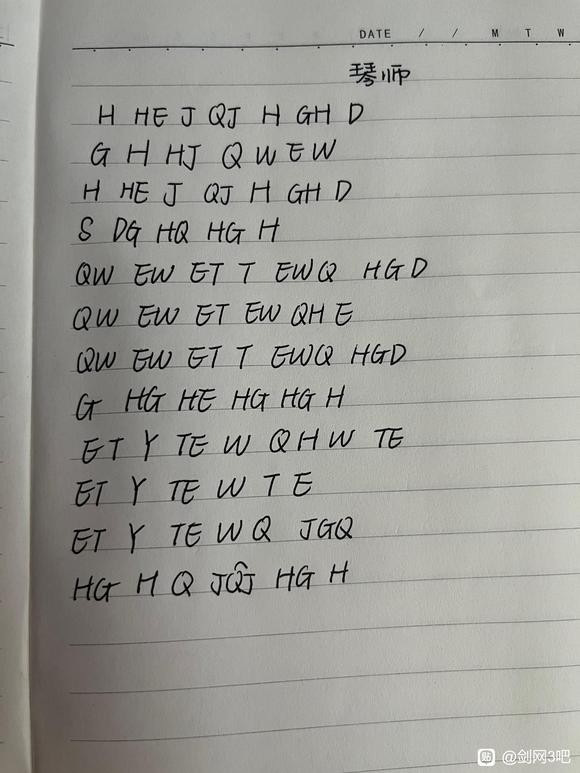 DATE / / M T W
琴师
H HE J QJ H GH D
G H HJ Q W E W
H HE J QJ H GH D
S DG HQ HG H
QW EW ET T EWQ HGD
QW EW ET EW QH E
QW EW ET T EWQ HGD
G HG HE HG HG H
ET Y TE W Q H W TE
ET Y TE W T E
ET Y TE W Q JGQ
HG H Q JQJ HG H
贴 @剑网3吧